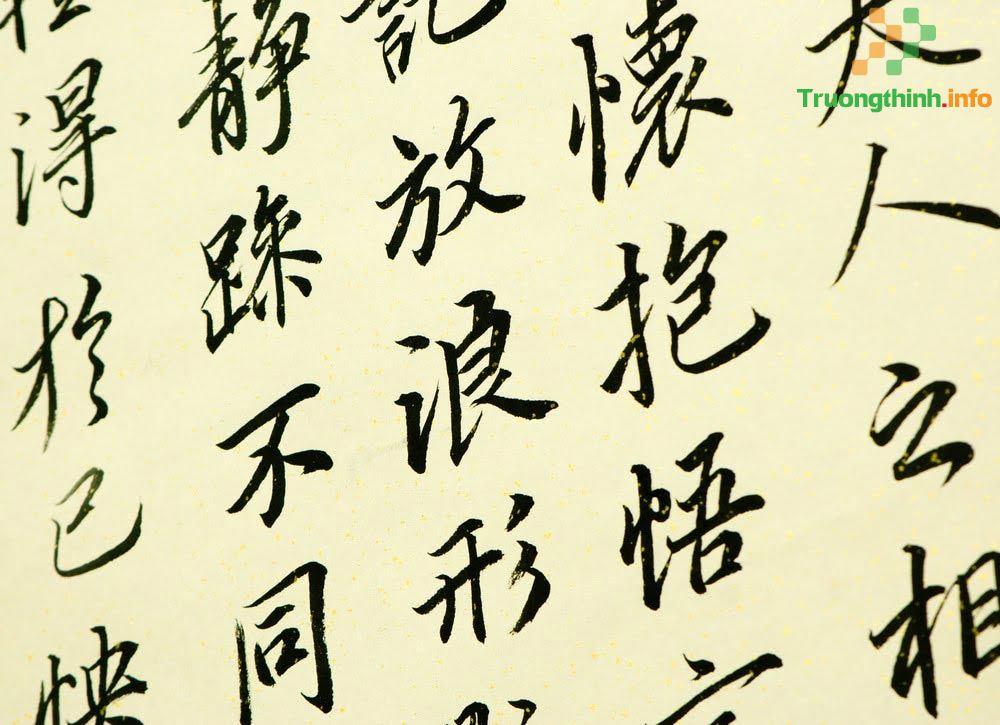 夫人之相
懷抱悟言
託放浪形
靜躁不同
得於己怏
Truongthinh.info